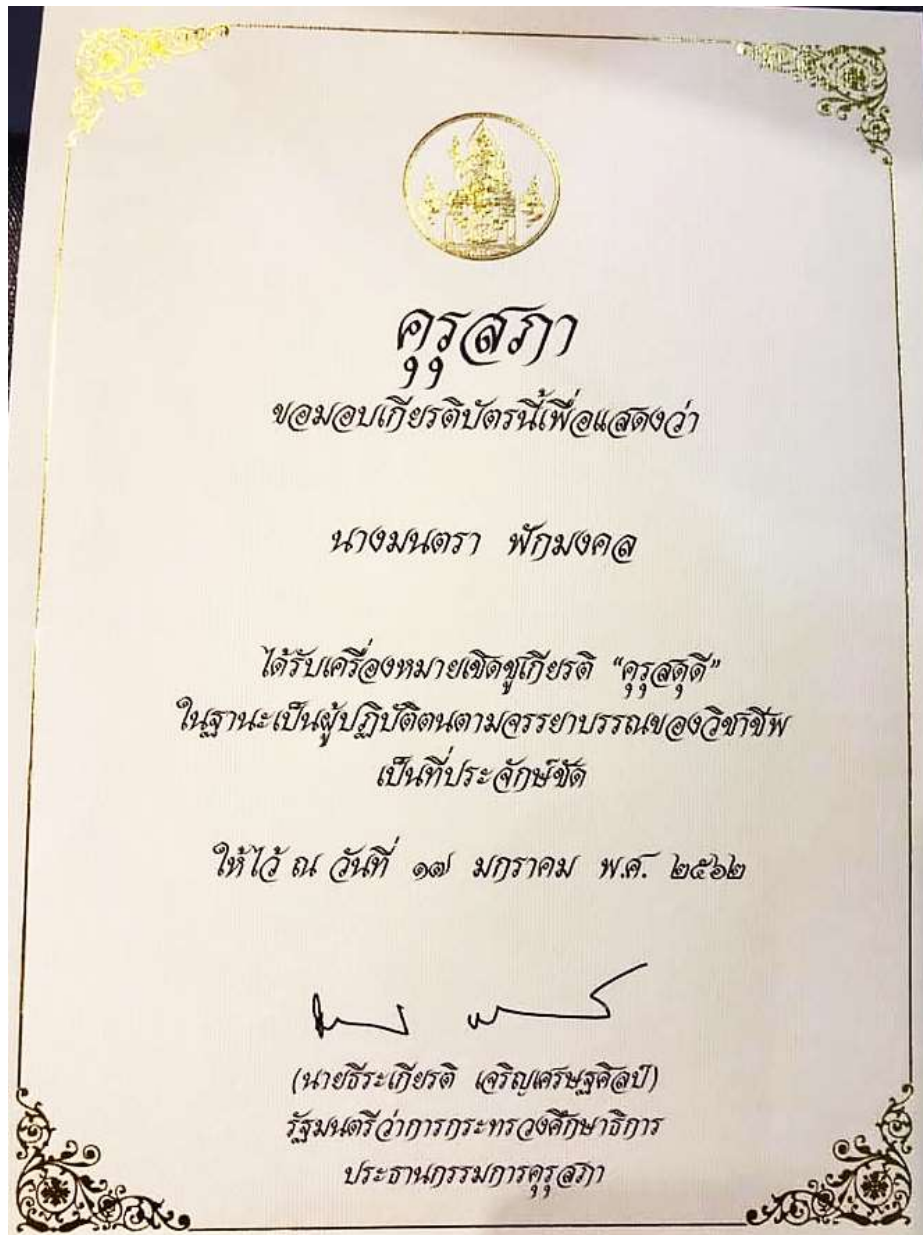 คุรุสภา
ขอมอบเกียรติบัตรนี้เพื่อแสดงว่า
นางมนตรา พักมงคล
ได้รับเครื่องหมายเชิดชูเกียรติ “คุรุสดุดี”
ในฐานะเป็นผู้ปฏิบัติตนตามจรรยาบรรณของวิชาชีพ
เป็นที่ประจักษ์ชัด
ให้ไว้ ณ วันที่ ๑๗ มกราคม พ.ศ. ๒๕๖๒
(นายธีระเกียรติ เจริญเศรษฐศิลป์)
รัฐมนตรีว่าการกระทรวงศึกษาธิการ
ประธานกรรมการคุรุสภา